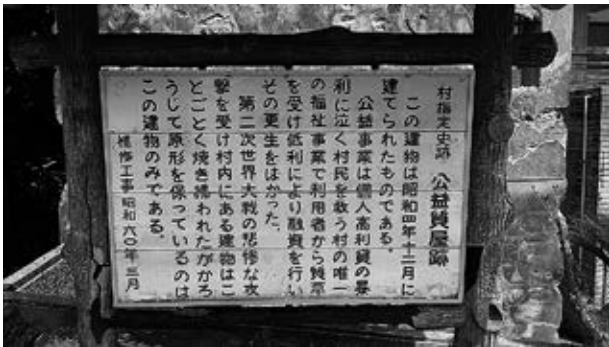 村指定史跡 公益質屋跡
この建物は昭和四年十二月に
建てられたものである。
公益事業は個人高利貸の暴
利に泣く村民を救う村の唯一
の福祉事業で利用者から質草
を受け低利により融資を行い
その更生をはかった。
第二次世界大戦の悲惨な攻
撃を受け村内にある建物はこ
とごとく焼き拂われたがかろ
うじて原形を保っているのは
この建物のみである。
補修工事 昭和六〇年三月